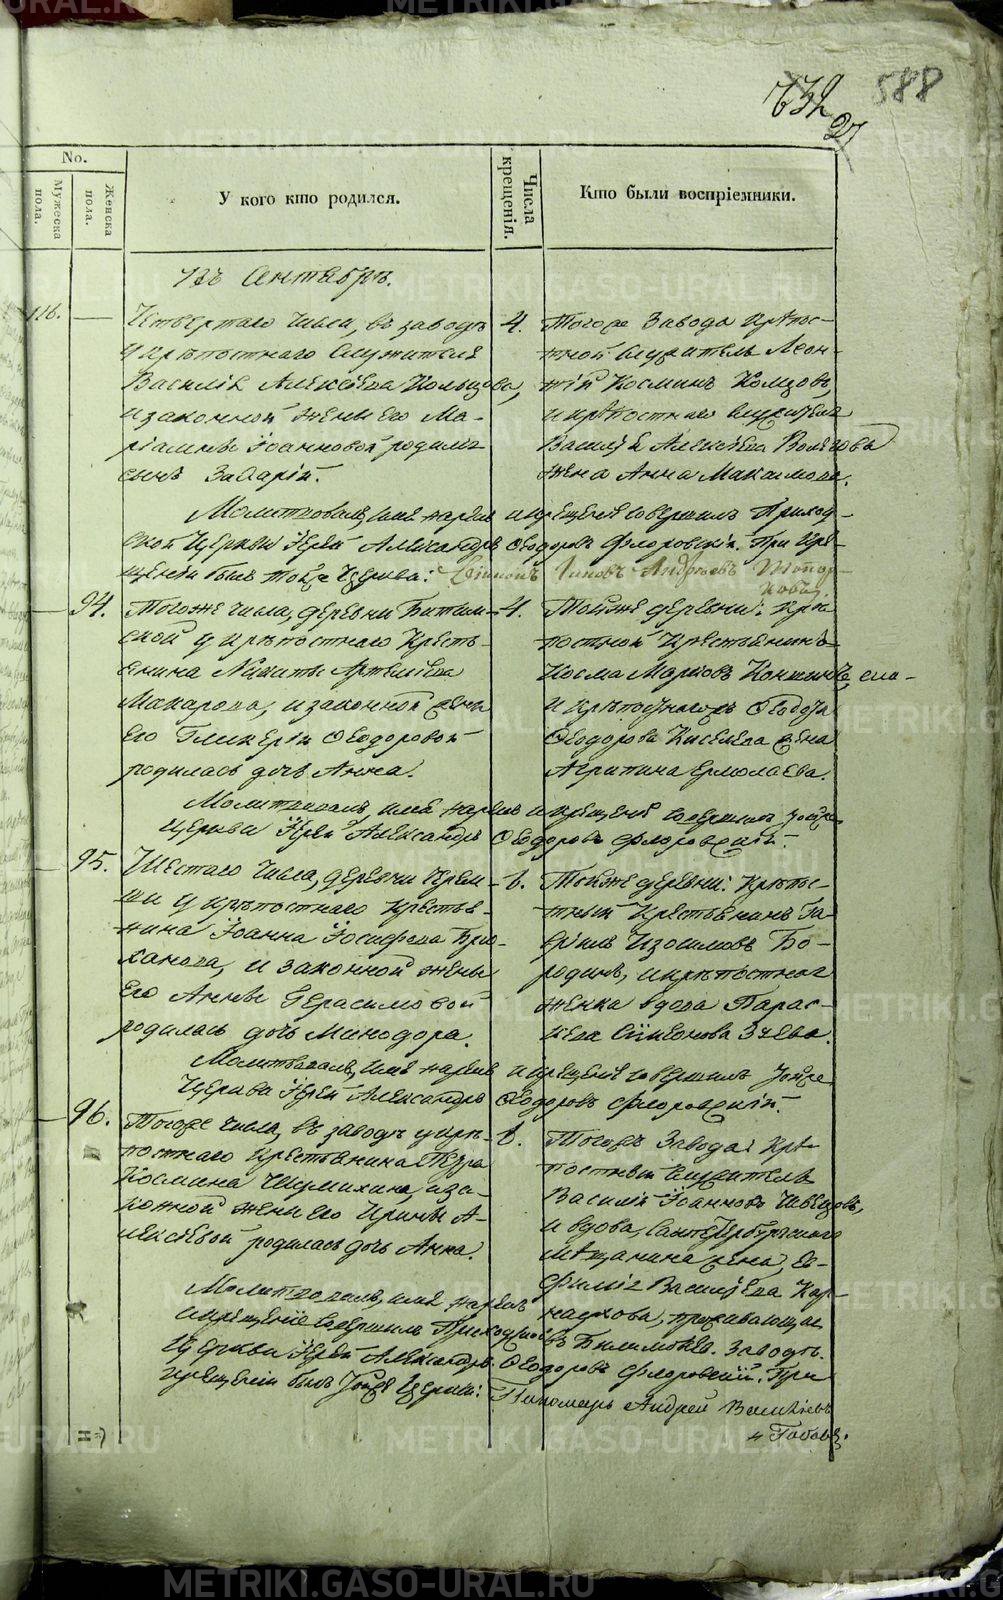 588
No.
Мужеска пола.
Женска пола.
У кого кто родился.
Числа крещенія.
Кто были воспріемники.
Въ Сентябрѣ.
116.
Четвертаго числа, въ заводѣ
у крѣпостнаго служителя
Василія Алексѣева Кольцова,
и законной жены его Ма-
Іоанновой родился
сынъ Захарій.
4.
Тогоже Завода крѣпос-
тной служитель Леон-
тій Косминъ
и крѣпостнаго служителя
Василія Алексѣева
жена Анна Максимова.
Молитвовалъ, имя нарекъ и крещеніе совершилъ Приход-
ской Церкви Іерей Александръ Ѳеодоровъ Флоровскій. При кре-
щеніи былъ тойже Церкви: Андреевъ Топор-
ковъ.
94.
Тогоже числа, деревни Битим-
ской у крѣпостнаго кресть-
янина Никиты Артемьева
Макарова, и законной жены
его Гликеріи Ѳеодоровой
родилась дочь Анна.
4.
Тойже деревни: крѣ-
постной крестьянинъ
Косма Марковъ
и крѣпостнаго Ѳедора
Ѳеодорова Киселева жена
Агрипина Ермолаева.
Молитвовалъ, имя нарекъ и крещеніе совершилъ тойже
Церкви Іерей Александръ Ѳеодоровъ Флоровскій.
95.
Шестаго числа, деревни Крем-
у крѣпостнаго крестья-
нина Іоанна Іосифова Брю-
ханова, и законной жены
его Анны Герасимовой
родилась дочь Минодора.
6.
Тойже деревни: крѣпос-
тный крестьянинъ Га-
вріилъ Изосимовъ Бо-
родинъ, и крѣпостная
женка вдова Парас-
кева Симеонова Зуева.
Молитвовалъ, имя нарекъ и крещеніе совершилъ тойже
Церкви Іерей Александръ Ѳеодоровъ Флоровскій.
96.
Тогоже числа, въ заводѣ у крѣ-
постнаго крестьянина Петра
Космина Шумихина, и за-
конной жены его Ирины А-
лексѣевой родилась дочь Анна.
6.
Тогожъ Завода: крѣ-
постный служитель
Василій Іоанновъ Швецовъ,
и вдова, Санктпетербургскаго
мѣщанина жена, Ев-
фимія Васильева Кар-
наухова, проживающая
въ Билимбаев. Заводѣ.
Молитвовалъ, имя нарекъ
и крещеніе совершилъ Приходской
Церкви Іерей Александръ Ѳеодоровъ Флоровскій. При
крещеніи былъ тойже Церкви: Пономарь Андрей Васильевъ
METRIKI.GASO-URAL.RU